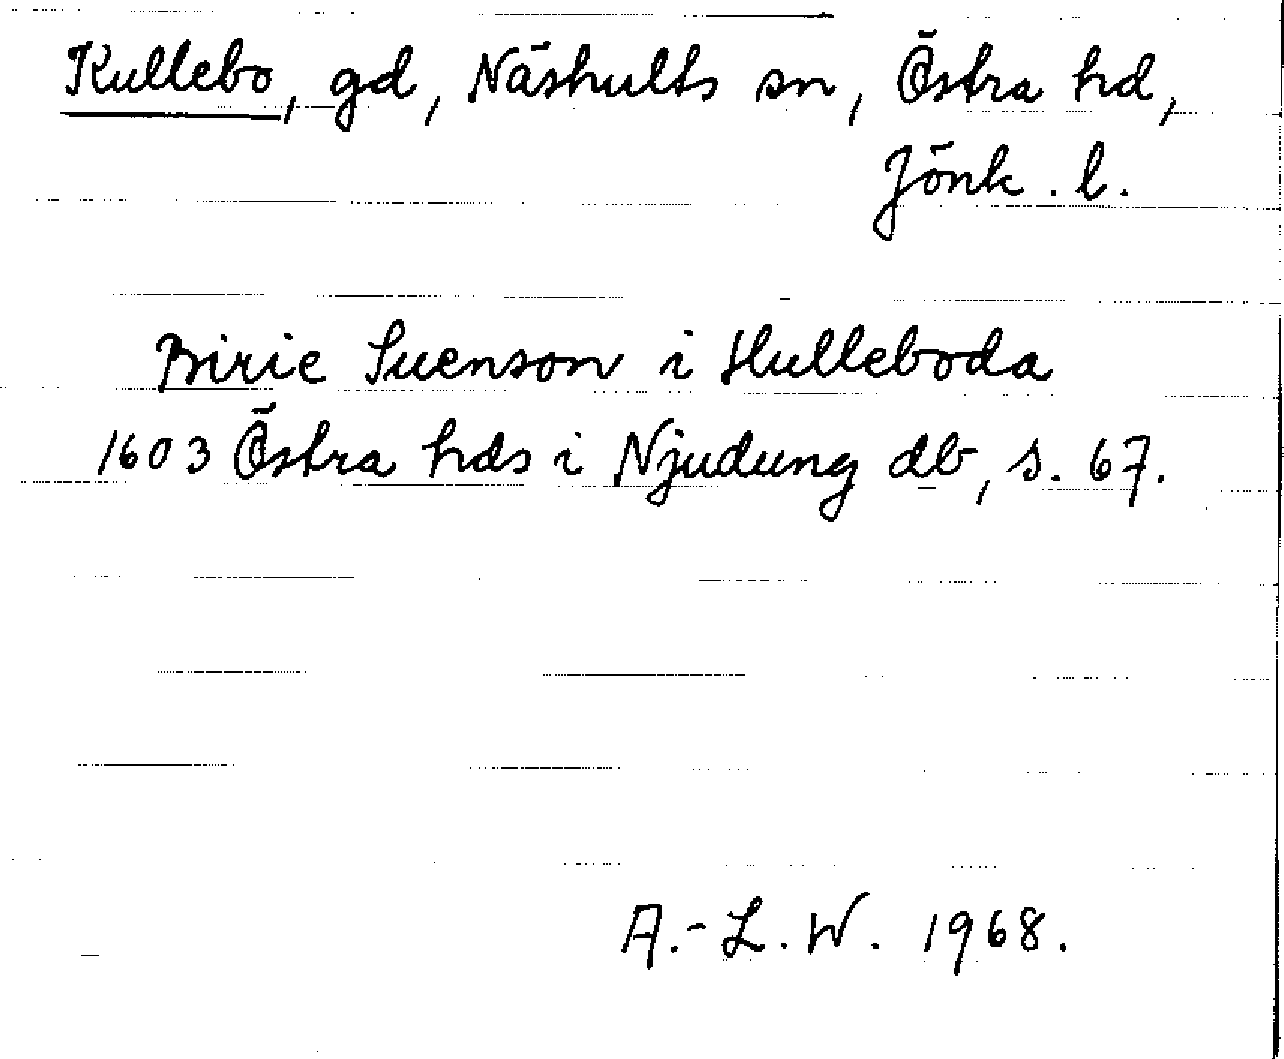 Kullebo, gd, Näshults sn, Östra hd,
Jönk. l.
Birie Suenson i Hulleboda
1603 Östra hds i Njudung db, s. 67.
A.-L. W. 1968.